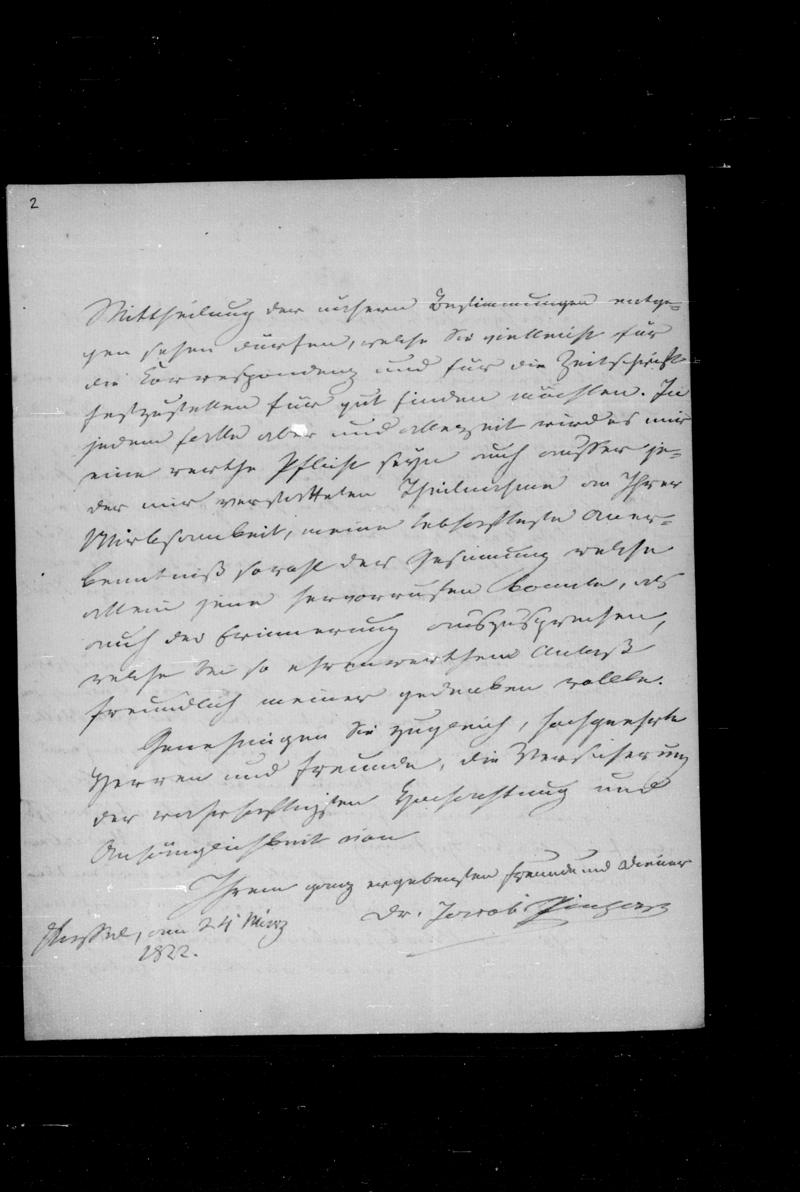 2
Mittheilung der nähern Bestimmungen entge=
gen sehen dürfen, welche Sie vielleicht für
die Correspondenz und für die Zeitschrift
festzustellen für gut finden möchten. In
jedem Falle aber und allezeit wird es mir
eine werthe Pflicht seyn auch ausser je=
der mir verstatteten Theilnahme an Ihrer
Wirksamkeit, meine lebhafteste Aner=
kenntniß sowohl der Gesinnung welche
allein jene hervorrufen konnte, als
auch der Erinnerung auszusprechen,
welche bei so ehrenwerthem Anlaß
freundlich meiner gedenken wollte.
Genehmigen Sie zugleich, hochgeehrte
Herren und Freunde, die Versicherung
der wahrhaftigsten Hochachtung und
Anhänglichkeit von
Ihrem ganz ergebensten Freunde und Diener
Dr. Jacob Pinhas
Kassel, am 24 März
1822.